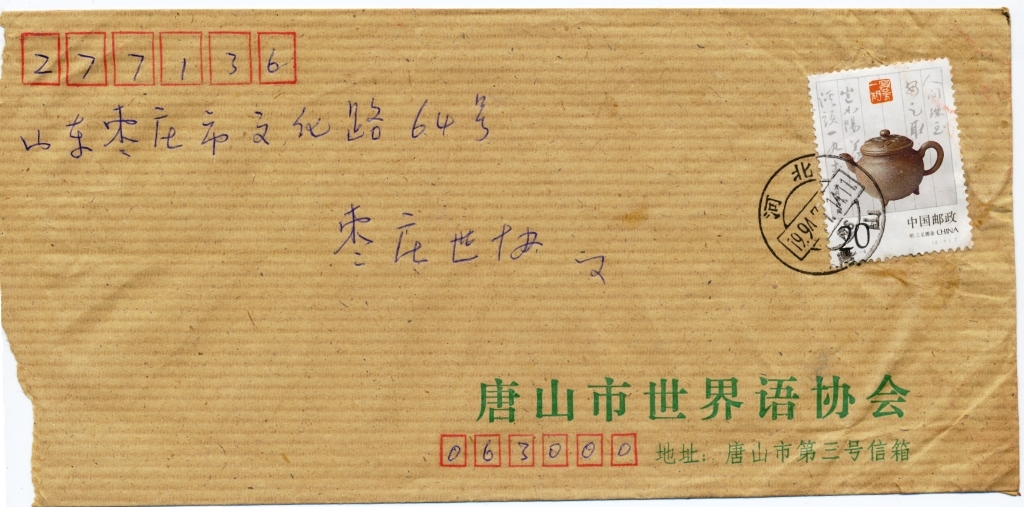 277136
山东枣庄市文化路64号
枣庄世协
中国邮政
CHINA
20
河北
唐山市世界语协会
063000 地址：唐山市第三号信箱